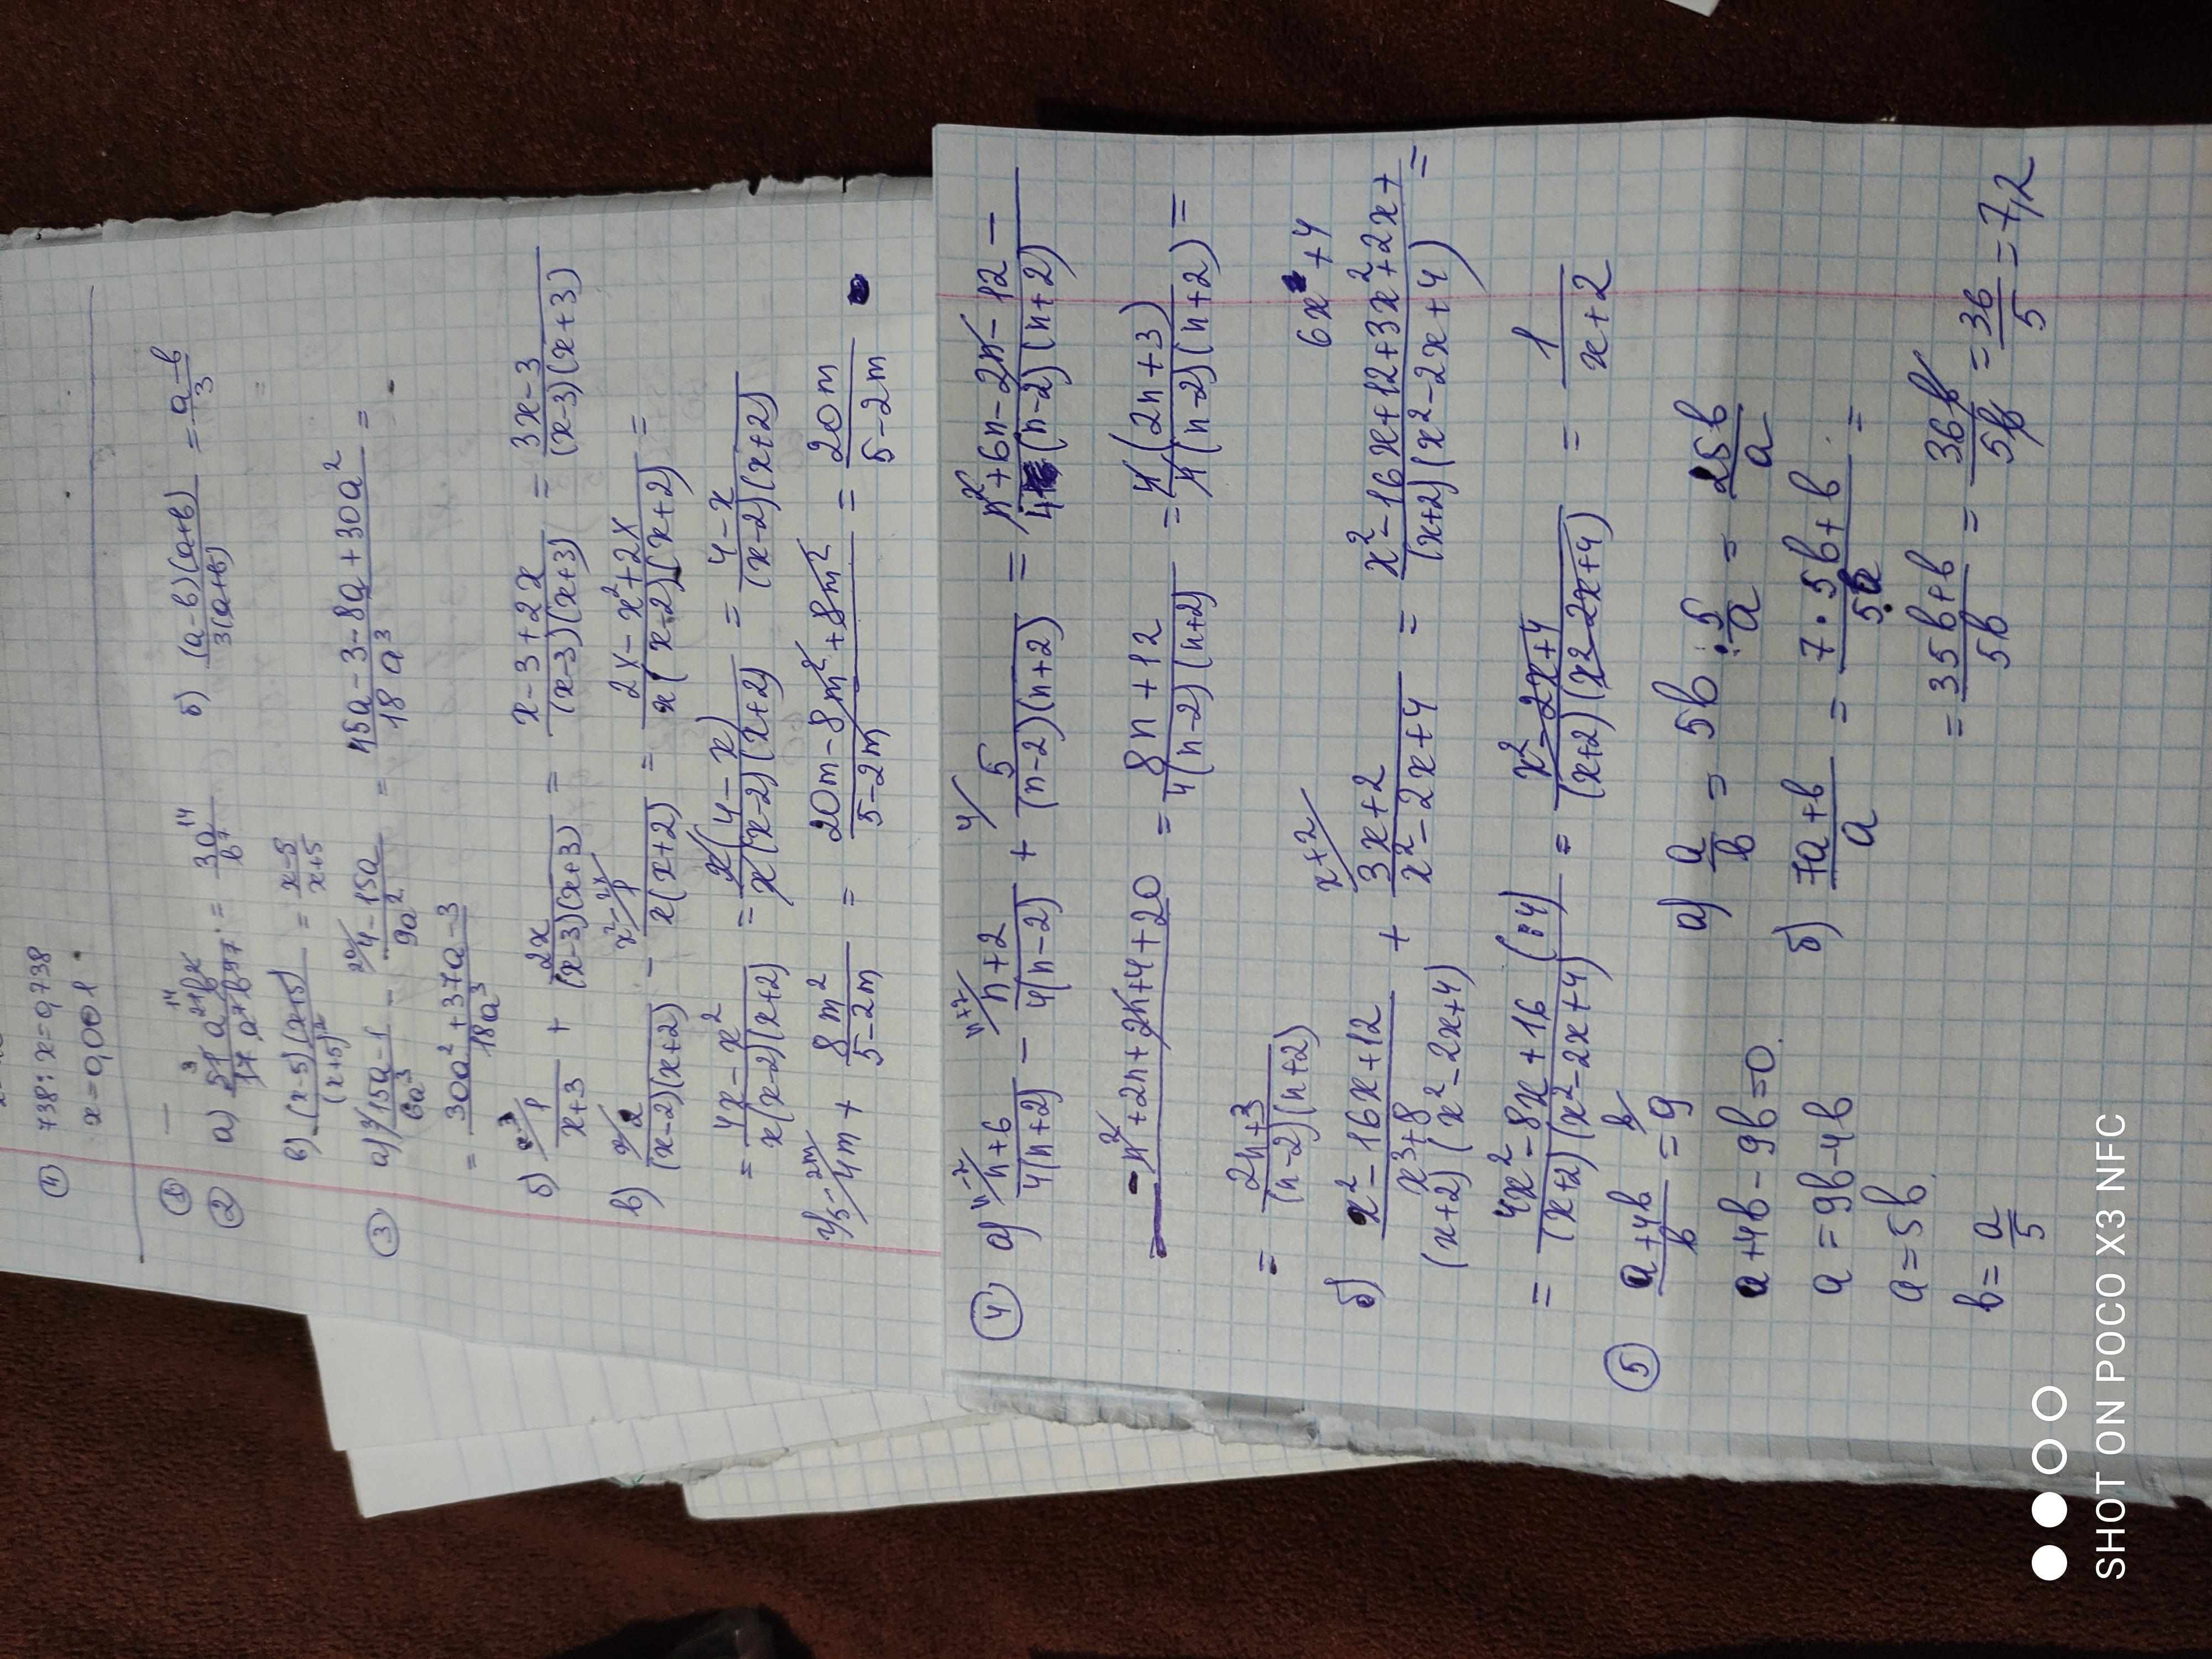 ④ 738 : x = 0,738
x = 0,001
① —
② а) 51a²¹b⁷ / 17a⁷b¹⁴ = 3a¹⁴ / b⁷ б) (a-b)(a+b) / 3(a+b) = a-b / 3
в) (x-5)(x+5) / (x+5)² = x-5 / x+5
③ а) 15a-1 / 6a³ - 4-15a / 9a² = 45a-3-8a+30a² / 18a³ =
= 30a²+37a-3 / 18a³
б) 1 / x+3 + 2x / (x-3)(x+3) = x-3+2x / (x-3)(x+3) = 3x-3 / (x-3)(x+3)
в) 2 / (x-2)(x+2) - 1 / x(x+2) = 2x-x²+2x / x(x-2)(x+2) =
= 4x-x² / x(x-2)(x+2) = x(4-x) / x(x-2)(x+2) = 4-x / (x-2)(x+2)
г) 4m + 8m² / 5-2m = 20m-8m²+8m² / 5-2m = 20m / 5-2m
④ а) n+6 / 4(n+2) - n+2 / 4(n-2) + 5 / (n-2)(n+2) = n²+6n-2n-12- / 4(n-2)(n+2)
-n²+2n+2n+4+20 = 8n+12 / 4(n-2)(n+2) = 4(2n+3) / 4(n-2)(n+2) =
= 2n+3 / (n-2)(n+2)
6x+4
б) x²-16x+12 / x³+8 + 3x+2 / x²-2x+4 = x²-16x+12+3x²+2x+ / (x+2)(x²-2x+4) =
(x+2)(x²-2x+4)
= 4x²-8x+16 (:4) / (x+2)(x²-2x+4) = x²-2x+4 / (x+2)(x²-2x+4) = 1 / x+2
⑤ a+4b / b = 9 а) a / b = 5b : 5 / a = 25b / a
a+4b-9b=0 б) 7a+b / a = 7·5b+b / 5b =
a=9b-4b
a=5b = 35b+b / 5b = 36b / 5b = 36 / 5 = 7,2
b= a / 5
SHOT ON POCO X3 NFC